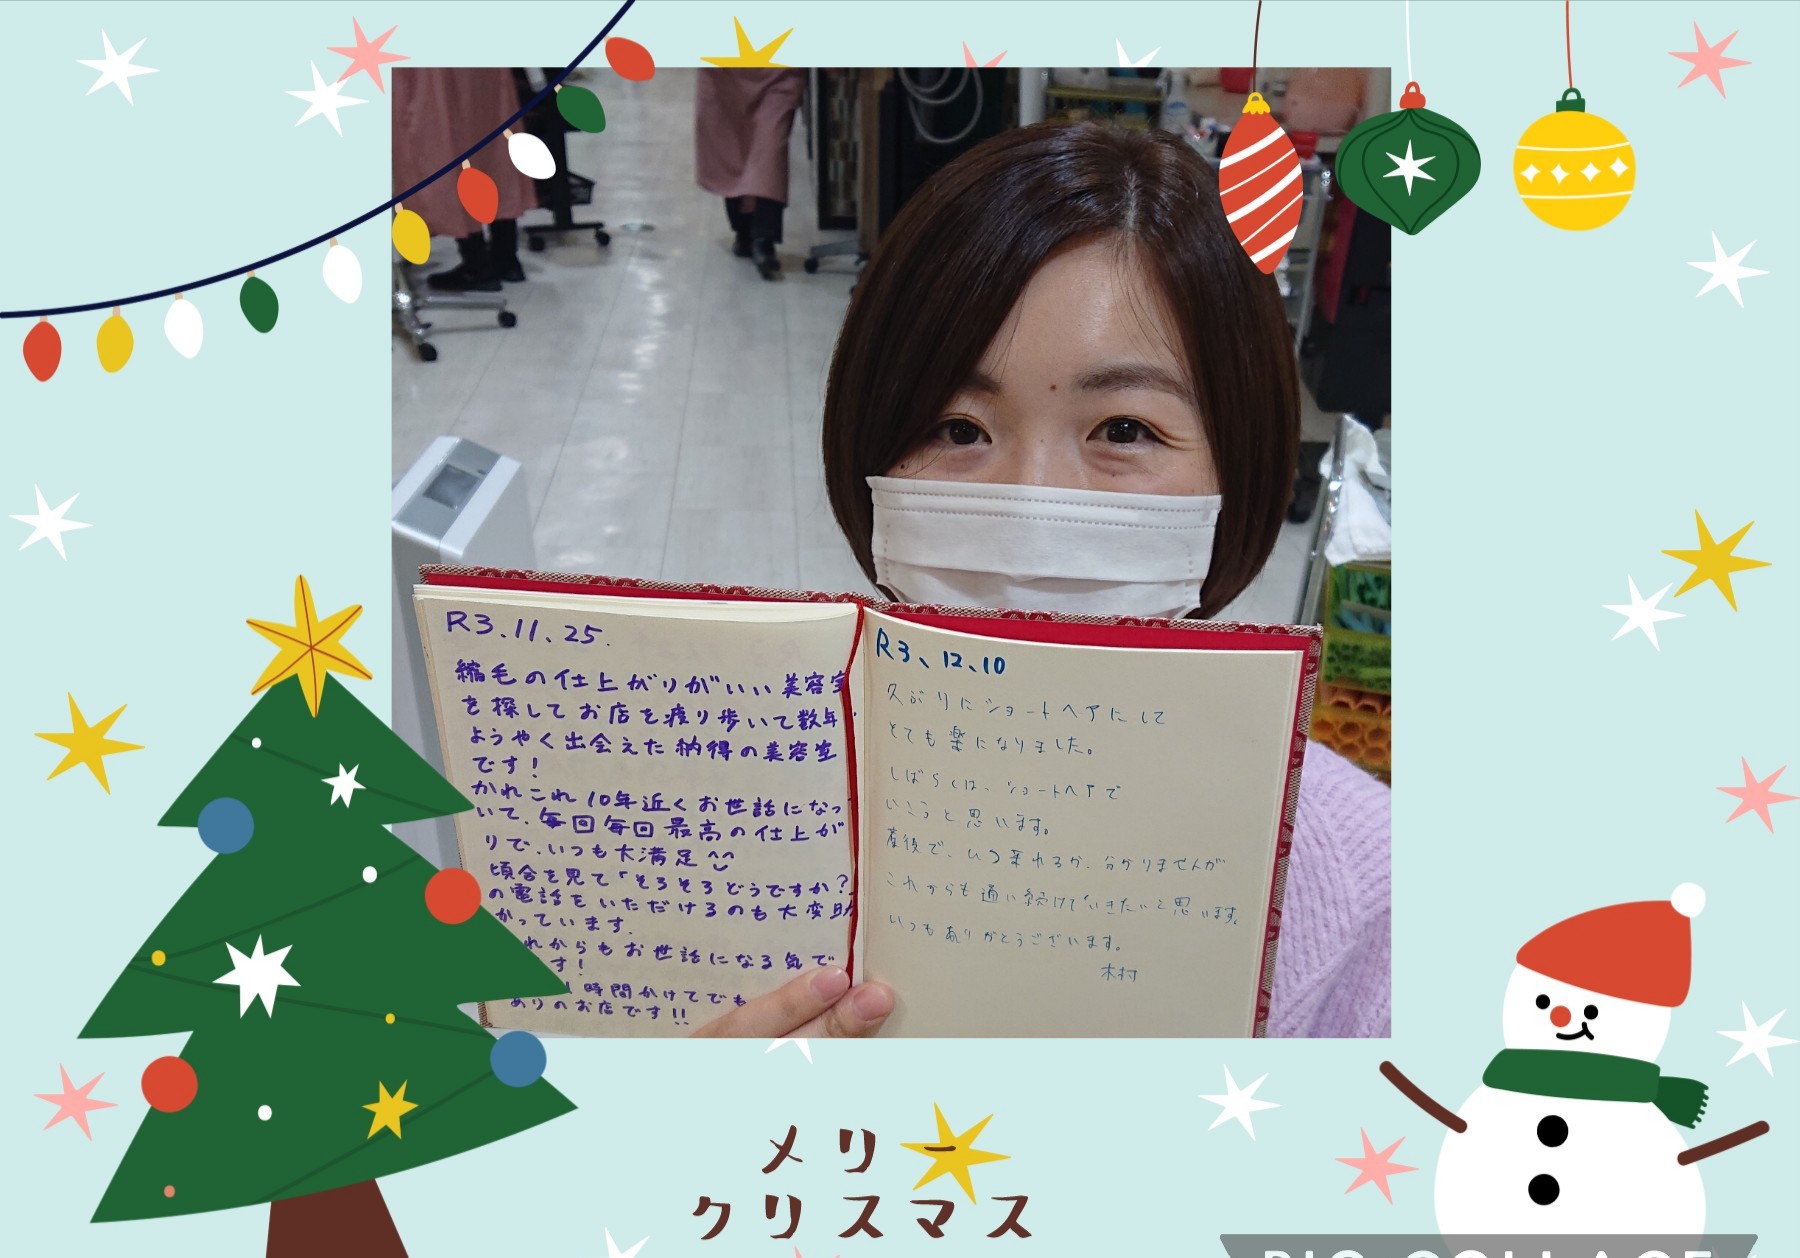 R3.11.25.
縮毛の仕上がりがいい美容室
を探してお店を渡り歩いて数年、
ようやく出会えた納得の美容室
です!
かれこれ10年近くお世話になっ
いて、毎回毎回最高の仕上が
りで、いつも大満足^^
頃合を見て「そろそろどうですか?」
の電話をいただけるのも大変助
かっています.
れからもお世話になる気で
す!
1時間かけてでも
ありのお店です!!
R3、12、10
久ぶりにショートヘアにして
とても楽になりました。
しばらくは、ショートヘアで
いこうと思います。
産後で、いつ来れるか、分かりませんが
これからも通い続けていきたいと思います。
いつもありがとうございます。
木村
メリー
クリスマス
PIC COLLAGE